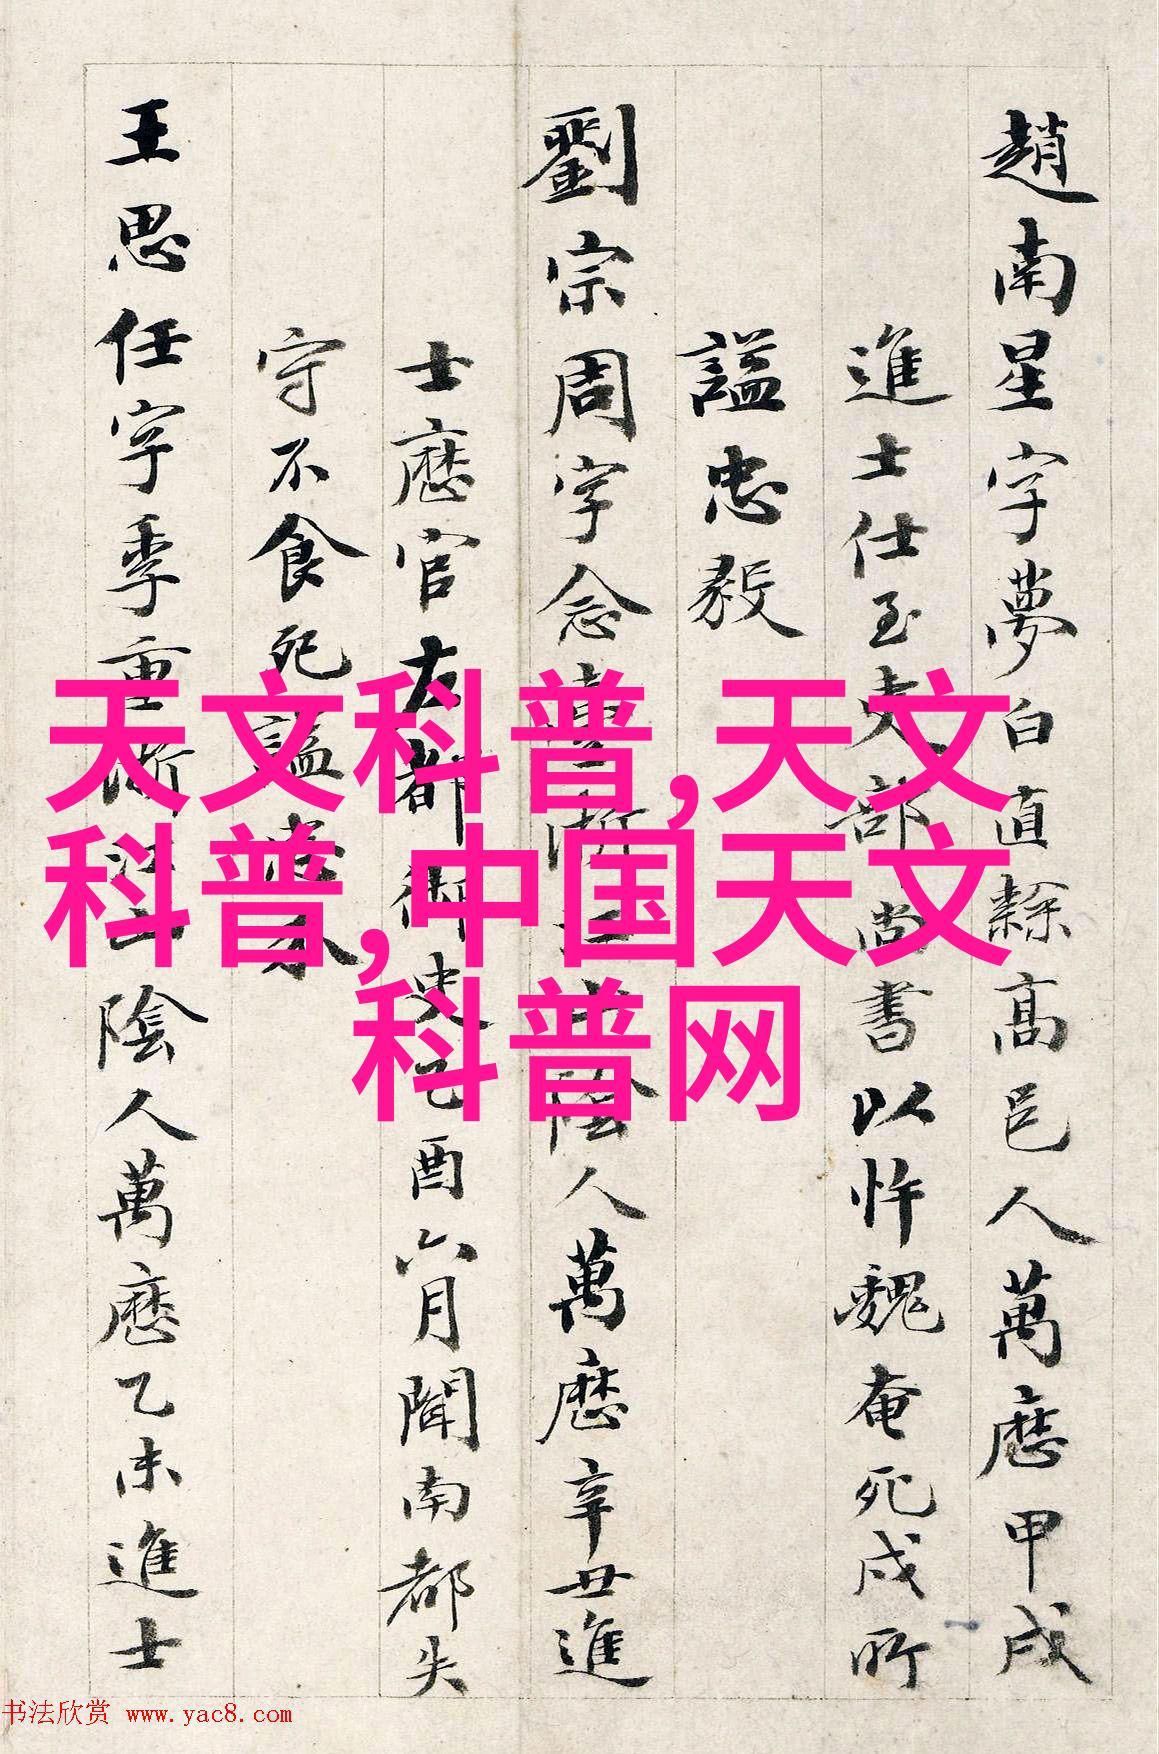 趙南星字夢白直隸高邑人萬曆甲戌
進士仕至吏部尚書以忤魏奄死戍所
諡忠毅
劉宗周字念臺浙江山陰人萬曆辛丑進
士歷官左都御史乙酉六月聞南都失
守不食死諡
王思任字季重浙江山陰人萬曆乙未進士
天文科普,天文
科普,中国天文
科普网
书法欣赏 www.yac8.com